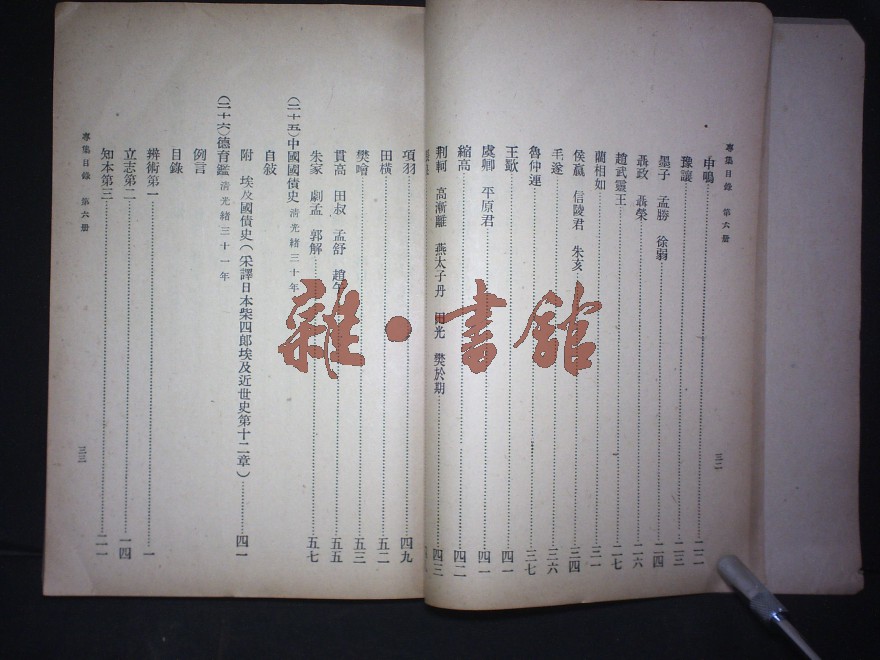 專集目錄　第六册
三二
申鳴……二二
豫讓……二三
墨子　孟勝　徐弱……二四
聶政　聶榮……二六
趙武靈王……二七
藺相如……三一
侯嬴　信陵君　朱亥……三四
毛遂……三六
魯仲連……三七
王歜……四一
虞卿　平原君……四一
縮高……四二
荆軻　高漸離　燕太子丹　田光　樊於期……四三
項羽……四九
田橫……五二
樊噲……五三
貫高　田叔　孟舒　趙午……五五
朱家　劇孟　郭解……五七
（二十五）中國國債史　清光緒三十年
自敍
附　埃及國債史（采譯日本柴四郎埃及近世史第十二章）……四一
（二十六）德育鑑　清光緒三十一年
例言
目錄
辨術第一……一
立志第二……一四
知本第三……二一
專集目錄　第六册
三三
雜·書館